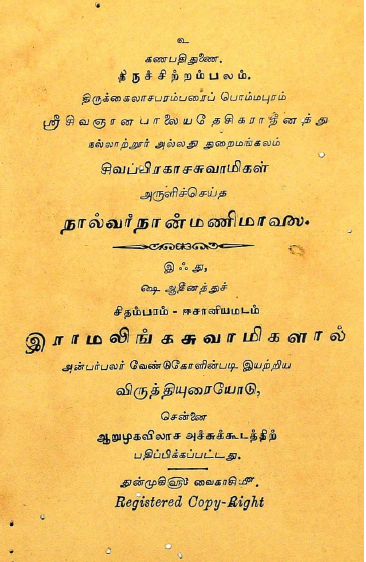 உ
கணபதிதுணை.
திருச்சிற்றம்பலம்.
திருக்கைலாசபரம்பரைப் பொம்மபுரம்
ஸ்ரீசிவஞானபாலையதேசிகராதீனத்து
கல்லாற்றூர் அல்லது துறைமங்கலம்
சிவப்பிரகாசசுவாமிகள்
அருளிச்செய்த
நால்வர்நான்மணிமாலை.
இஃது,
ஷை ஆதீனத்துச்
சிதம்பரம் - ஈசானியமடம்
இராமலிங்கசுவாமிகளால்
அன்பர்பலர் வேண்டுகோளின்படி இயற்றிய
விருத்தியுரையோடு,
சென்னை
ஆறுமுகவிலாச அச்சுக்கூடத்திற்
பதிப்பிக்கப்பட்டது.
துன்முகி௵ வைகாசி௴.
Registered Copy-Right